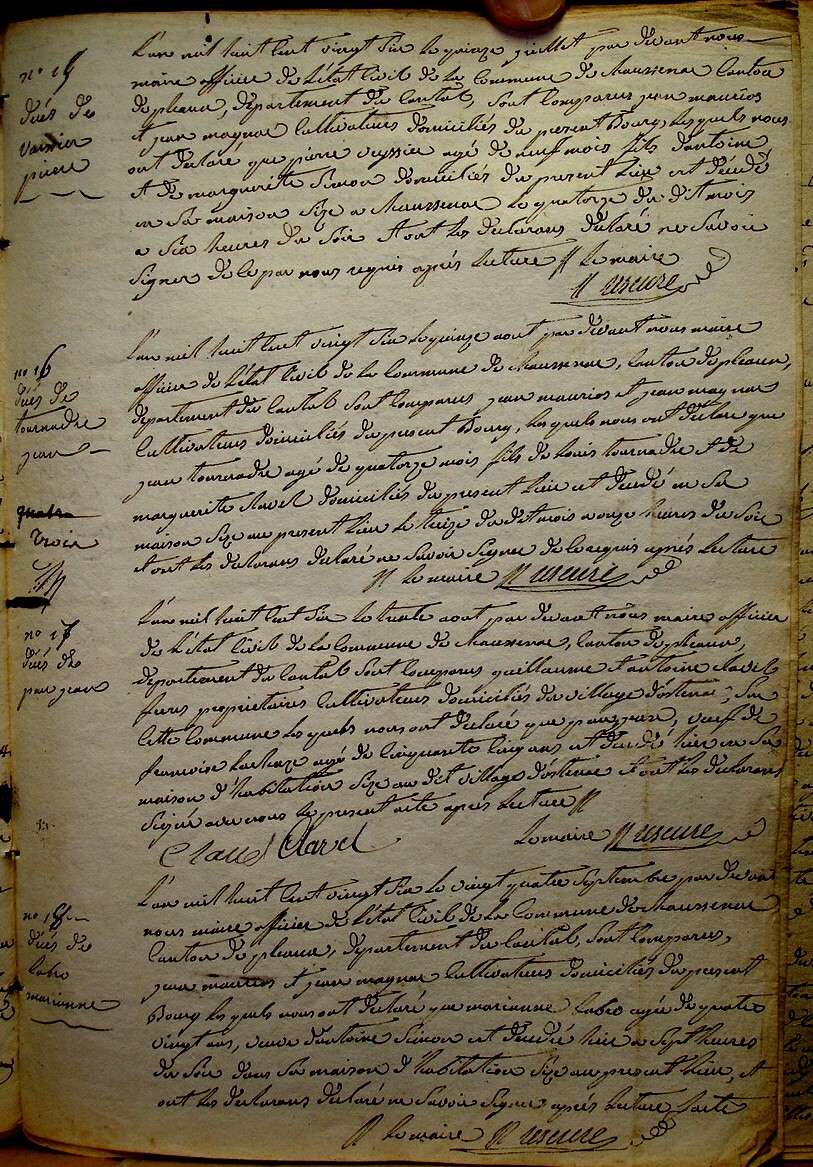 n° 15
décés de
veyssier
pierre
L'an mil huit cent vingt six le quinze juillet par devant nous
maire officier de l'état civil de la commune de Chaussenac canton
de pleaux, département du Cantal, sont comparus jean mauries
et jean magnac cultivateurs domiciliés du present Bourg, les quels nous
ont declaré que pierre veyssier agé de neuf mois fils d'antoine
et de marguerite Simon domiciliés du present lieu est décédé
en sa maison size a Chaussenac le quatorze du dit mois
a six heures du soir et ont les declarans declaré ne savoir
signer de ce par nous requis après lecture
Le maire
n° 16
décés de
tournadre
jean
L'an mil huit cent vingt six le quinze aout par devant nous maire
officier de l'état civil de la commune de Chaussenac, canton de pleaux,
département du Cantal sont comparus jean mauries et jean magnac
cultivateurs domiciliés du present Bourg, les quels nous ont declaré que
jean tournadre agé de quatorze mois fils de Louis tournadre et de
marguerite clavel domiciliés du present lieu est décédé en sa
maison size au present lieu le treize du dit mois a onze heures du soir
et ont les declarans declaré ne savoir signer de ce requis après lecture
trois
Le maire
n° 17
décés de
jean
L'an mil huit cent six le trente aout par devant nous maire officier
de l'état civil de la commune de Chaussenac, canton de pleaux,
département du Cantal sont comparus guillaume et antoine clavel
freres proprietaires cultivateurs domiciliés du village d'ostenac, sur
cette commune les quels nous ont declaré que jean, veuf de
francoise agé de cinquante cinq ans est décédé hier en sa
maison d'habitation size au dit village d'ostenac et ont les declarans
signé avec nous le present acte après lecture
Clavel Clavel
Le maire
n° 18
décés de
labro
marianne
L'an mil huit cent vingt six le vingt quatre septembre par devant
nous maire officier de l'état civil de la commune de Chaussenac
canton de pleaux, département du Cantal, sont comparus,
jean mauries et jean magnac cultivateurs domiciliés du present
Bourg les quels nous ont declaré que marianne labro agée de quatre
vingt ans, veuve d'antoine Simon est décédée hier a sept heures
du soir dans sa maison d'habitation size au present lieu, et
ont les declarans declaré ne savoir signer après lecture faite
Le maire